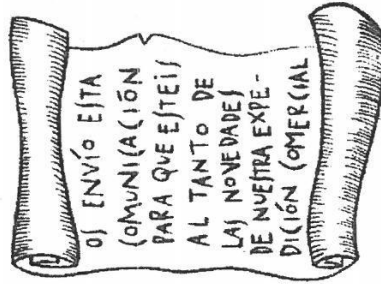 OS ENVÍO ESTA
COMUNICACIÓN
PARA QUE ESTEIS
AL TANTO DE
LAS NOVEDADES
DE NUESTRA EXPE-
DICIÓN COMERCIAL